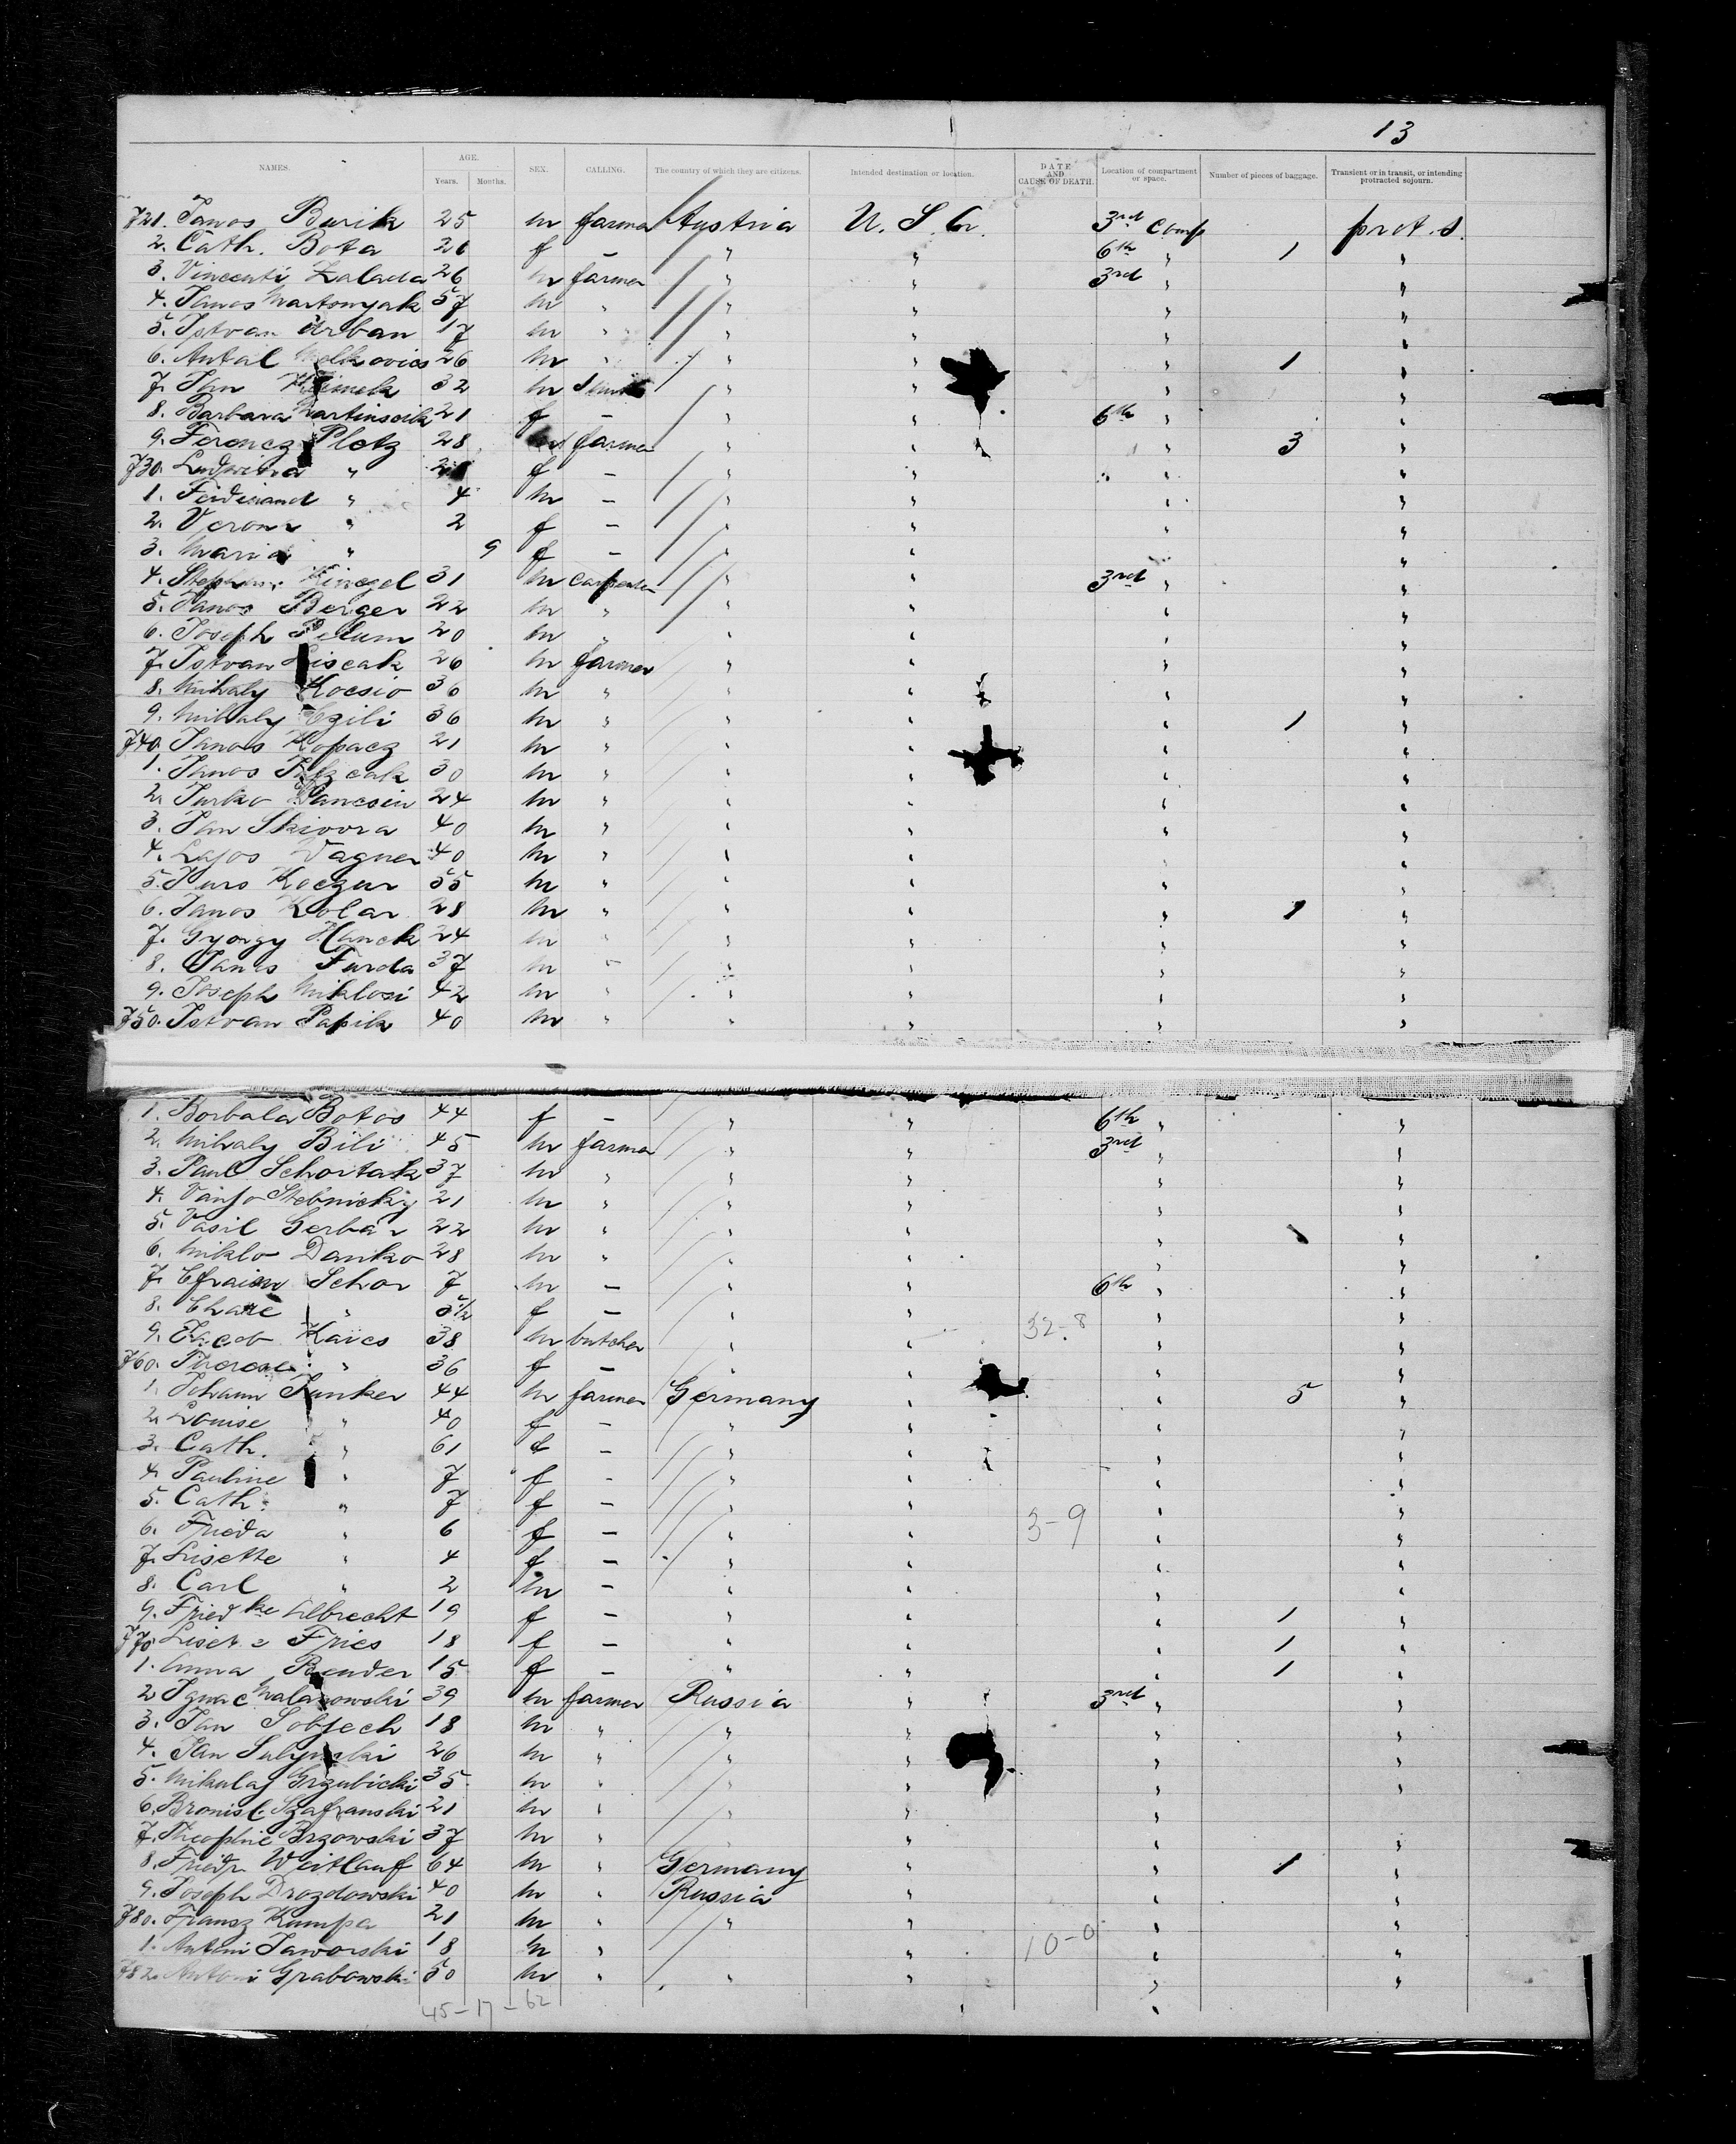 13
NAMES. AGE. Years. Months. SEX. CALLING. The country of which they are citizens. Intended destination or location. DATE AND CAUSE OF DEATH. Location of compartment or space. Number of pieces of baggage. Transient or in transit, or intending protracted sojourn.
721. Janos Burik 25 m farmer Austria U. S. A. 3rd Comp prot. s.
2. Cath. Bota 26 f — " " 6th " 1 "
3. Vincenti Zalada 26 m farmer " " 3rd " "
4. Janos Martonyak 57 m " " " " "
5. Istvan Urban 17 m " " " " "
6. Antal Melkovics 26 m " " " " 1 "
7. Jan Klimek 32 m Smith " " " "
8. Barbara Martinscik 21 f — " " 6th " "
9. Ferencz Plotz 28 m farmer " " " 3 "
730. Ludwina " f — " " " "
1. Ferdinand " 4 m — " " " "
2. Veron " 2 f — " " " "
3. Maria " 9 f — " " " "
4. Kinczel 31 m Carpenter " " 3rd " "
5. Janos Berger 22 m " " " " "
6. Joseph 20 m " " " " "
7. Istvan Liscak 26 m farmer " " " "
8. Mihaly Kocsio 36 m " " " " "
9. Mihaly Czili 36 m " " " " 1 "
740. Janos Kopacz 21 m " " " " "
1. Janos 30 m " " " " "
2. Jurko Gancsin 24 m " " " " "
3. Jan Skivora 40 m " " " " "
4. Lajos Wagner 40 m " " " " "
5. Juro Koczur 55 m " " " " "
6. Janos Kolar 28 m " " " " 1 "
7. Gyorgy Hanck 24 m " " " " "
8. Janos Furda 37 m " " " " "
9. Joseph Miklosi 42 m " " " " "
750. Istvan Papik 40 m " " " " "
1. Borbala Botos 44 f — " " 6th " "
2. Mihaly Bili 45 m farmer " " 3rd " "
3. Paul Schortak 37 m " " " " "
4. Stebnicky 21 m " " " " "
5. Vasil Gerbar 22 m " " " " "
6. Miklo Danko 28 m " " " " 1 "
7. Efraim Schor 7 m — " " 6th " "
8. " 5 1/2 f — " " " "
9. Jacob Kaics 38 m butcher " " 32-8 " "
760. Therese " 36 f — " " " "
1. Johann Junker 44 m farmer Germany " " 5 "
2. Louise " 40 f — " " " "
3. Cath. " 61 f — " " " "
4. Pauline " 7 f — " " " "
5. Cath. " 7 f — " " " "
6. Frieda " 6 f — " " 3-9 " "
7. Lisette " 4 f — " " " "
8. Carl " 2 m — " " " "
9. Friedke Albrecht 19 f — " " " 1 "
770 Fries 18 f — " " " 1 "
1. Anna Bender 15 f — " " " 1 "
2 Ignac Malanowski 39 m farmer Russia " 3rd " "
3. Jan Sobjech 18 m " " " " "
4. Jan 26 m " " " " "
5. Mikulaj Grzubicki 35 m " " " " "
6. Bronisl. Szafranski 21 m " " " "
7. Theophil Brzowski 37 m " " " "
8. Friedr. Weitlauf 64 m " Germany " " 1 "
9. Joseph Drozdowski 40 m " Russia " " "
780. Fransz Kumpa 21 m " " " " "
1. Antoni Jaworski 18 m " " 10-0 " "
782. Antoni Grabowski 50 m " " " " "
45-17-62